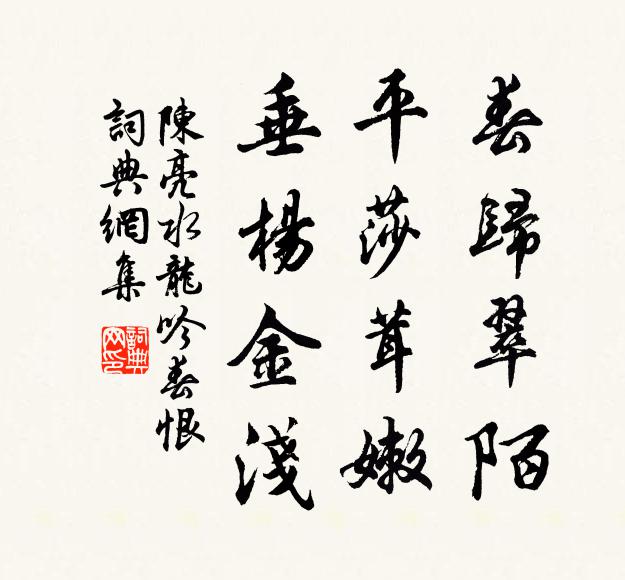 春歸翠陌
平莎茸嫩
垂楊金淺
陳亮水龍吟春恨
詞典網集
詞典
网印